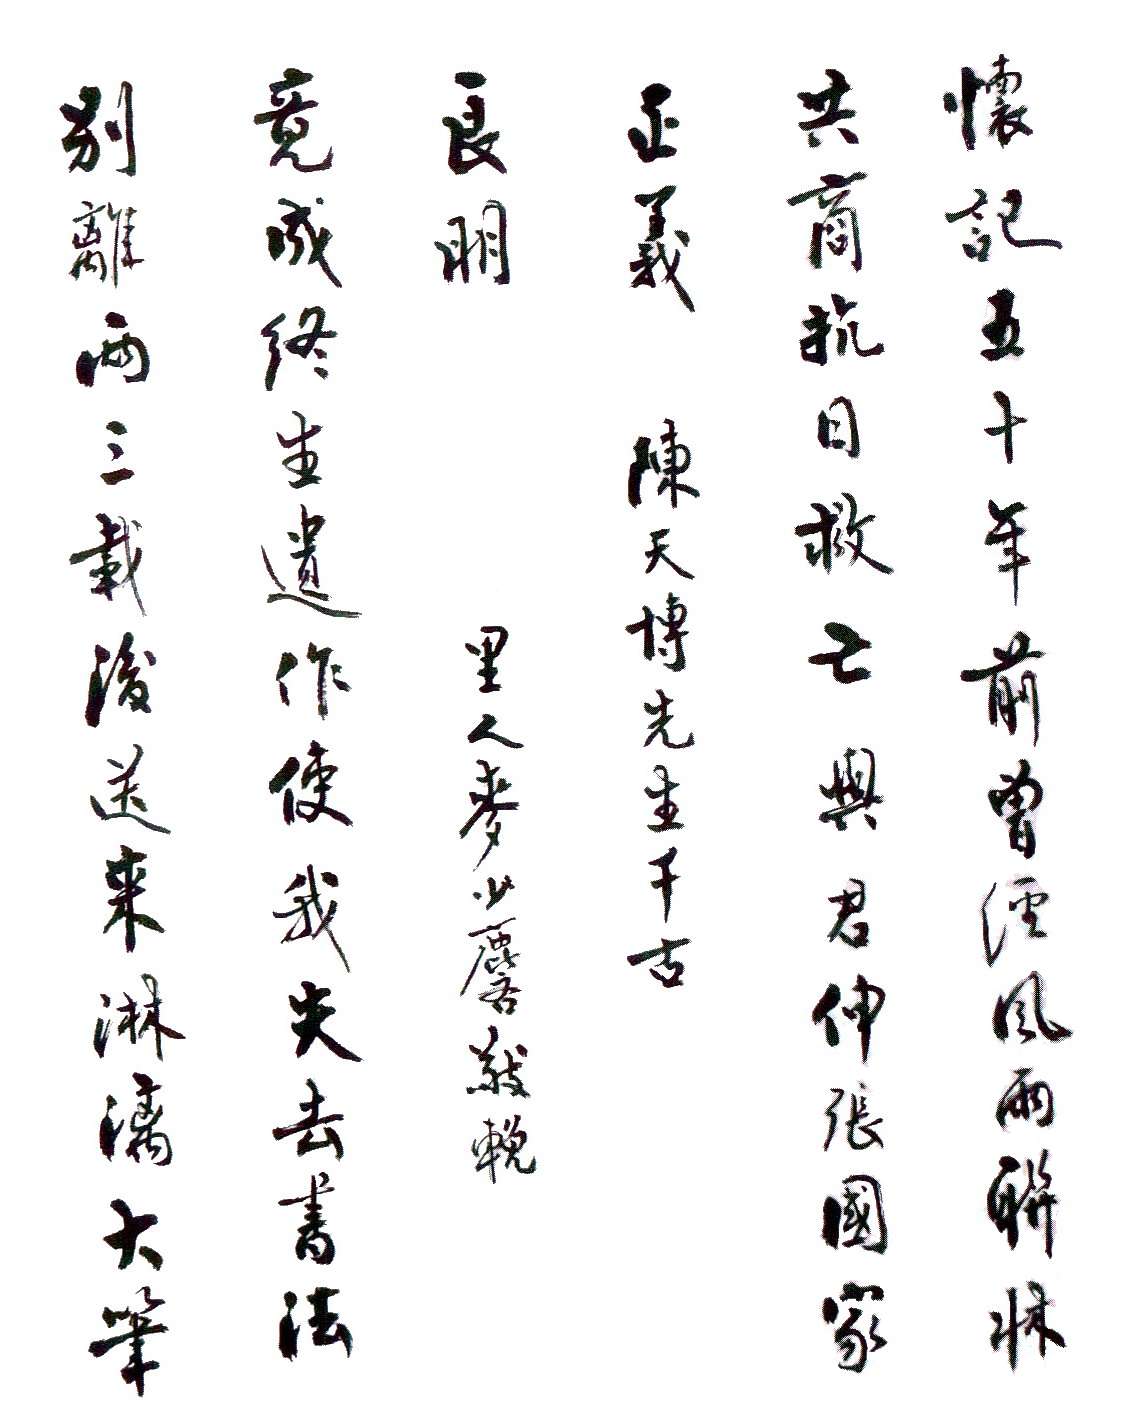 懷記五十年前曾經風雨聯牀
共商抗日救亡與君伸張國家
正義 陳天博先生千古
別離兩三載後送來淋漓大筆
竟成終生遺作使我失去書法
良朋 里人麥少麐敬輓